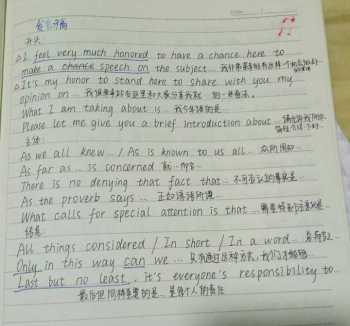 开头:
I feel very much honored to have a chance here to
make a chance speech on the subject...
It's my honor to stand here to share with you my
opinion on... 我很荣幸站在这里和大家分享我
What I am taking about is... 我今年讲的是
Please let me give you a brief Introduction about...
主体:
As we all knew... / As is known to us all... 众所周知...
As far as... is concerned 就...而言
There is no denying that fact that... 不可否认的事实是
As the proverb says... 正如谚语所说
What calls for special attention is that ...需要特别注意的是...
结尾
All things considered / In short / In a word...
Only in this way can we ... 只有通过这种方式, 我们才能够
Last but no least, it's everyone's responsibility to...
最后但同样重要的是... 是每个人的责任